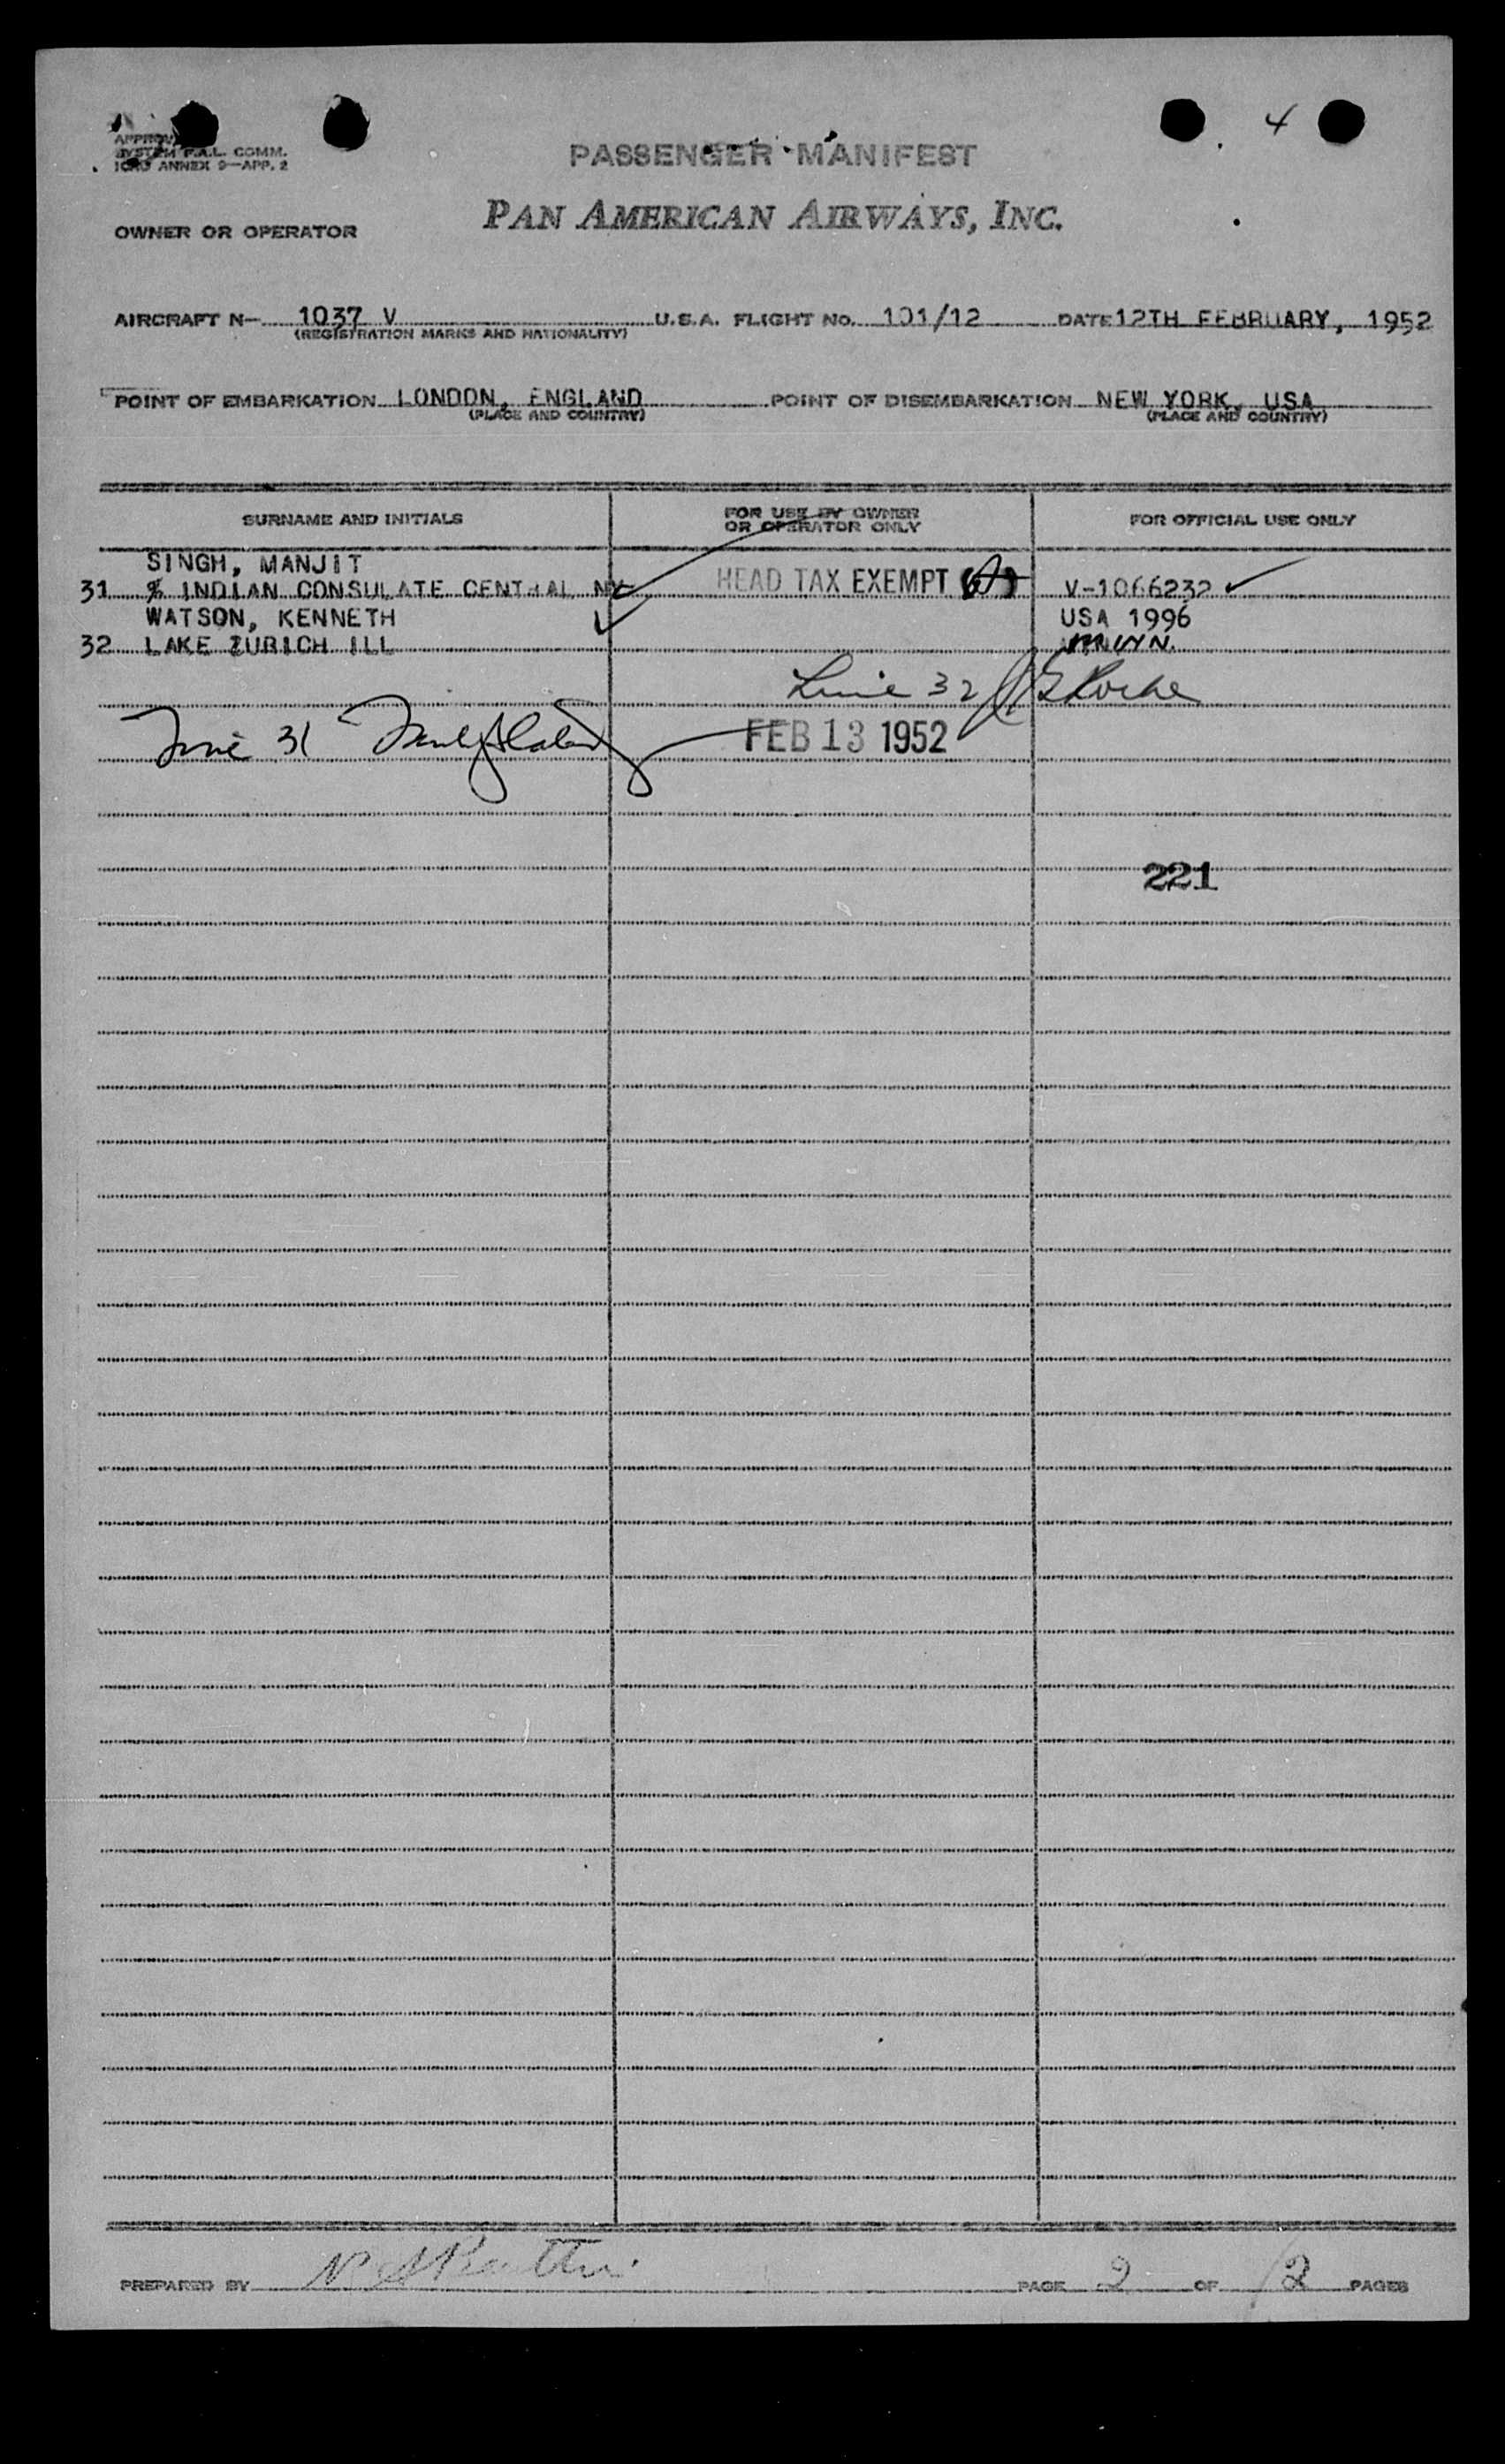 4
SYSTEM F.A.L. COMM.
ICAO ANNEX 9—APP. 2
PASSENGER MANIFEST
OWNER OR OPERATOR PAN AMERICAN AIRWAYS, INC.
AIRCRAFT N— 1037 V U.S.A. FLIGHT NO. 101/12 DATE 12TH FEBRUARY, 1952
(REGISTRATION MARKS AND NATIONALITY)
POINT OF EMBARKATION LONDON, ENGLAND POINT OF DISEMBARKATION NEW YORK, USA
(PLACE AND COUNTRY) (PLACE AND COUNTRY)
SURNAME AND INITIALS FOR USE BY OWNER OR OPERATOR ONLY FOR OFFICIAL USE ONLY
SINGH, MANJIT
31 % INDIAN CONSULATE CENTRAL NY HEAD TAX EXEMPT V-1066232
WATSON, KENNETH USA 1996
32 LAKE ZURICH ILL
Line 32
Line 31 FEB 13 1952
221
PREPARED BY PAGE 2 OF 2 PAGES